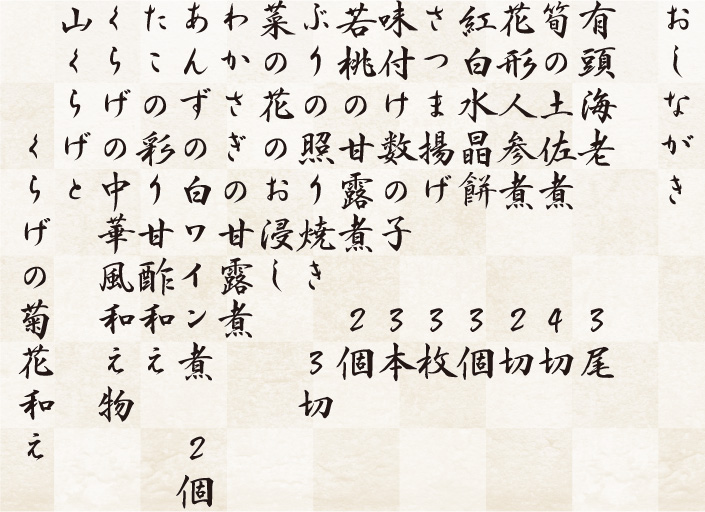 おしながき
有頭海老 3尾
筍の土佐煮 4切
花形人参煮 2切
紅白水晶餅 3個
さつま揚げ 3枚
味付け数の子 3本
若桃の甘露煮 2個
ぶりの照り焼き 3切
菜の花のお浸し
わかさぎの甘露煮
あんずの白ワイン煮 2個
たこの彩り甘酢和え
くらげの中華風和え物
山くらげと
くらげの菊花和え